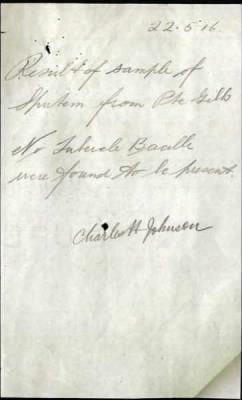 22.5.16.
Result of sample of
Sputem from Pte Gibb
No Tubercle Bacelle
were found to be present.
Charles H Johnson